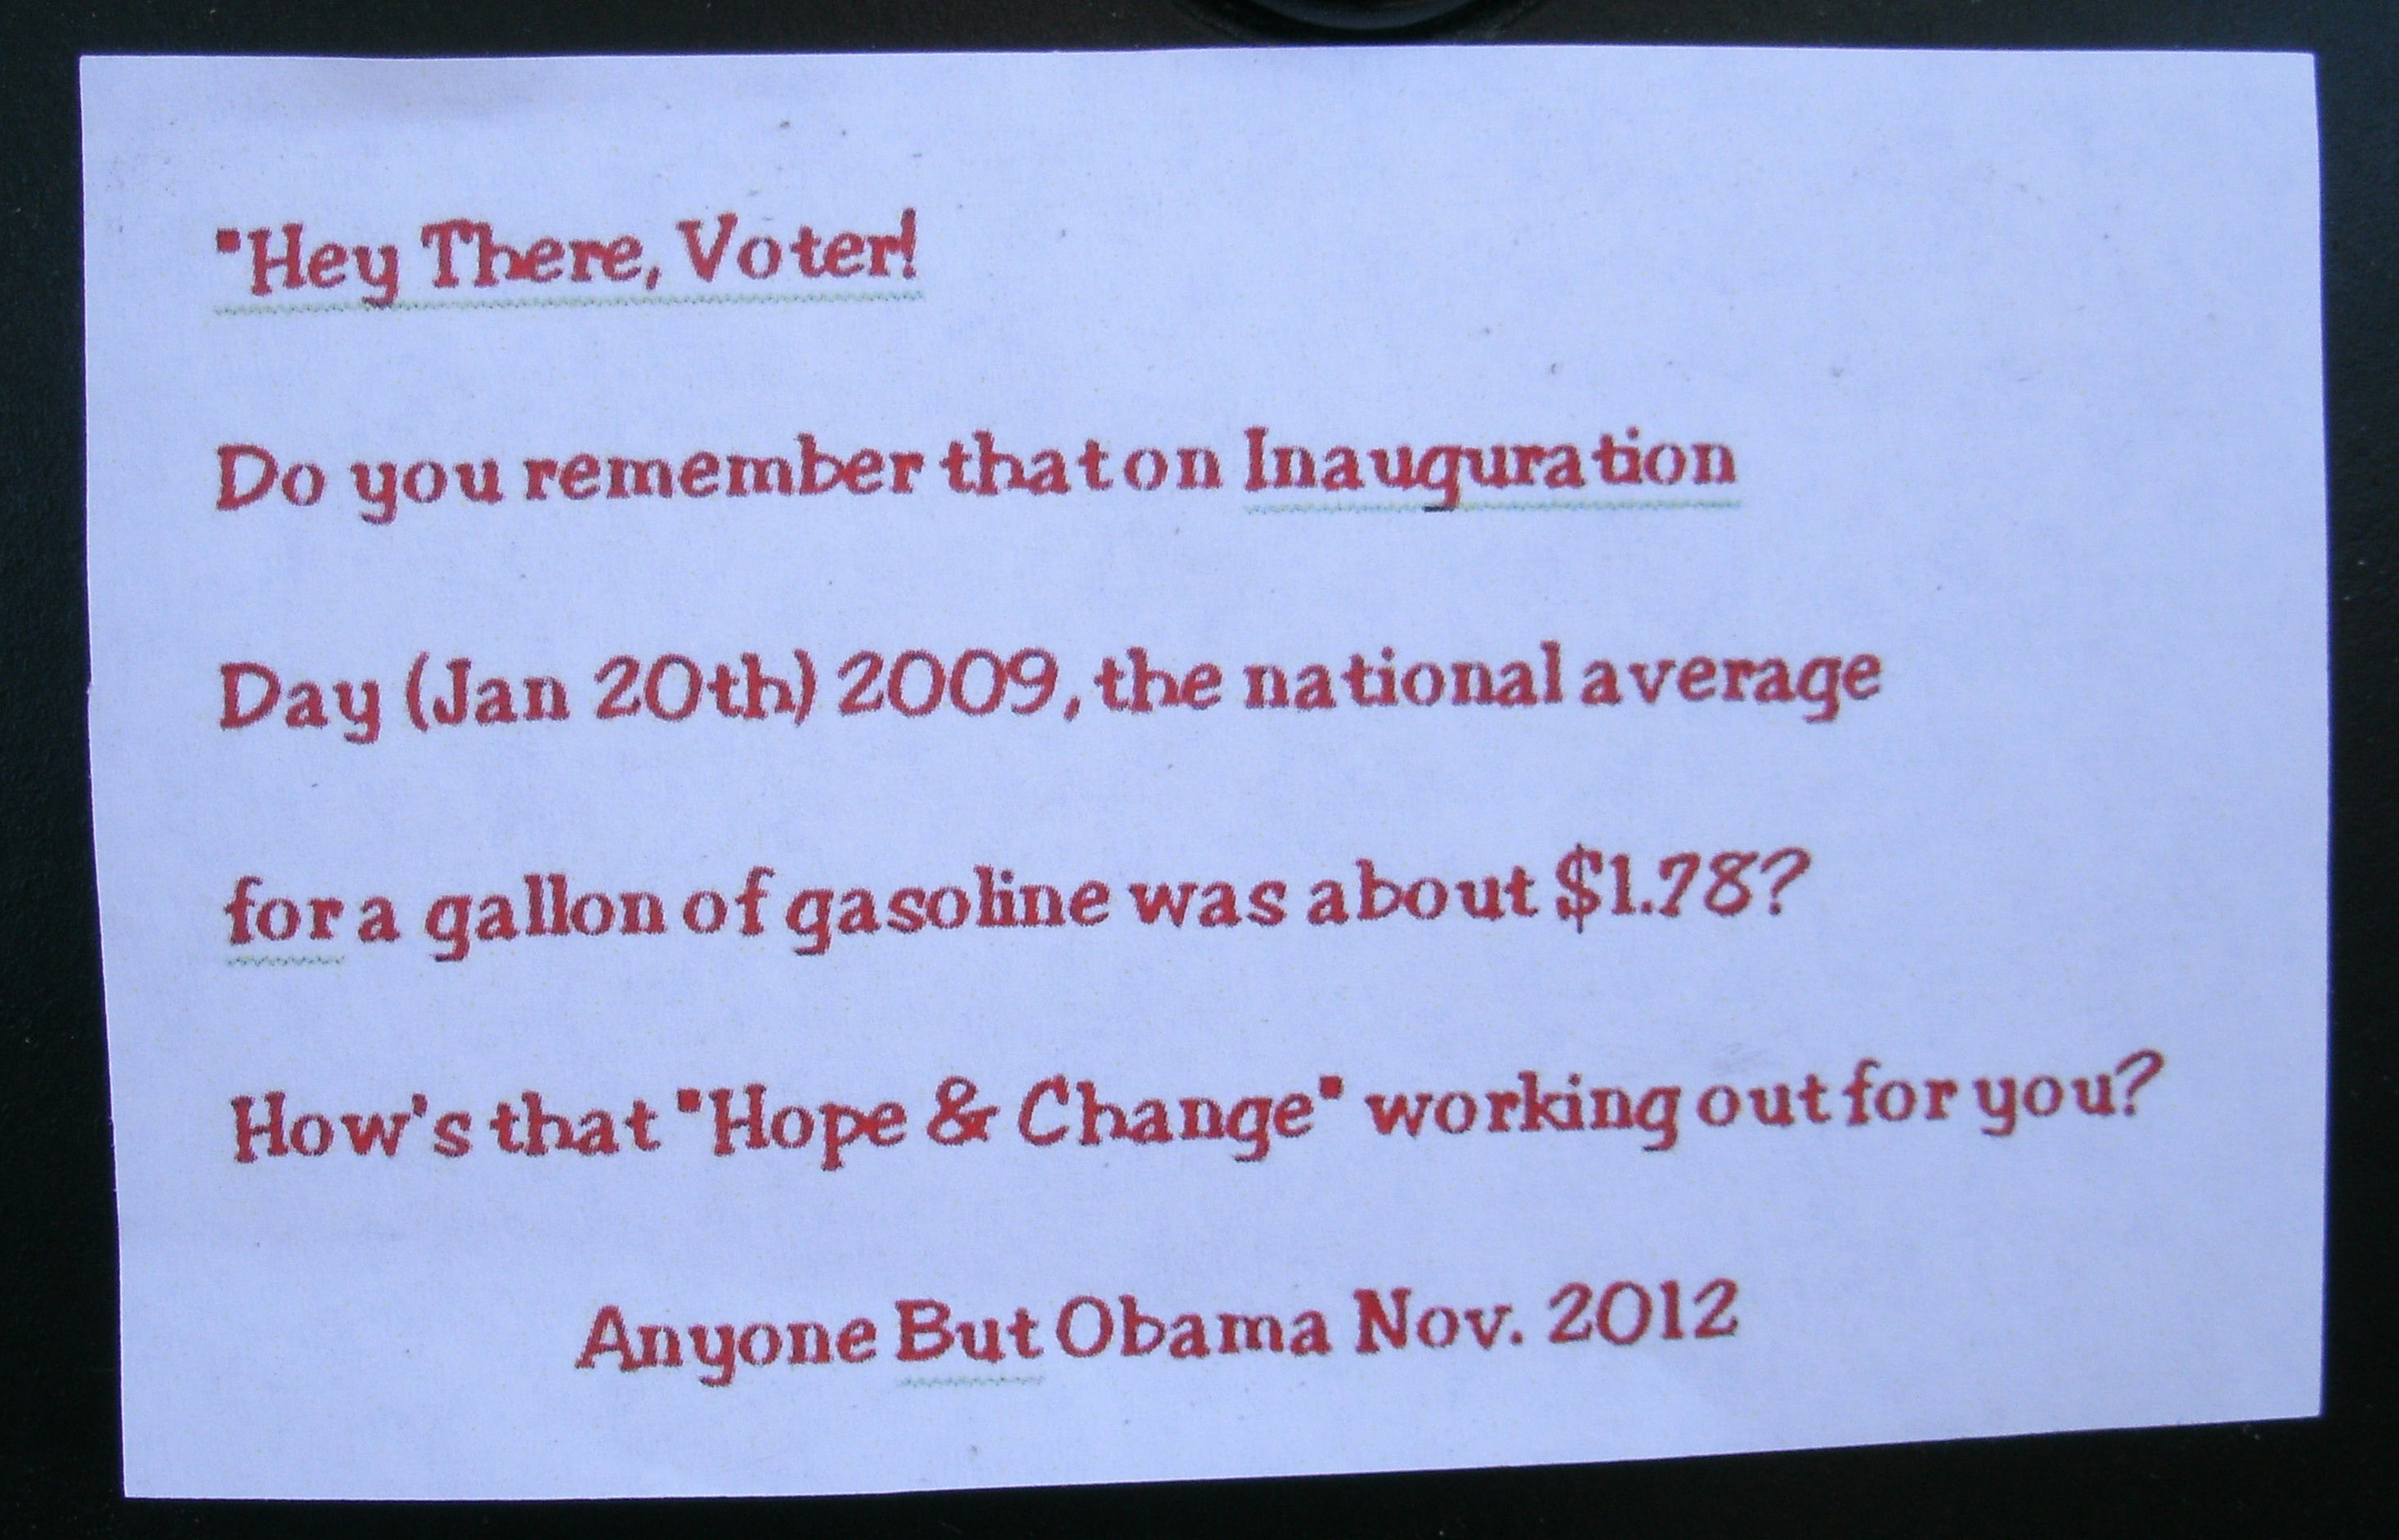 "Hey There, Voter!
Do you remember that on Inauguration
Day (Jan 20th) 2009, the national average
for a gallon of gasoline was about $1.78?
How's that "Hope & Change" working out for you?
Anyone But Obama Nov. 2012